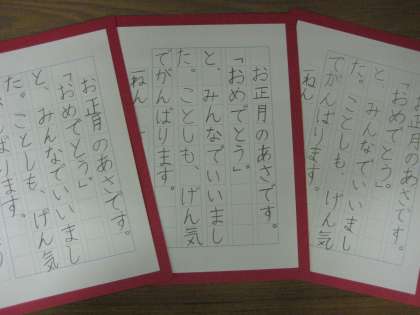 お正月のあさです。
「おめでとう」
と、みんなでいいまし
た。ことしも、げん気
ばります。
お正月のあさです。
「おめでとう」
と、みんなでいいまし
た。ことしも、げん気
でがんばります。
一ねん
お正月のあさです。
「おめでとう。
と みんなでいいまし
た。ことしも げん気
でがんばります。
一ねん